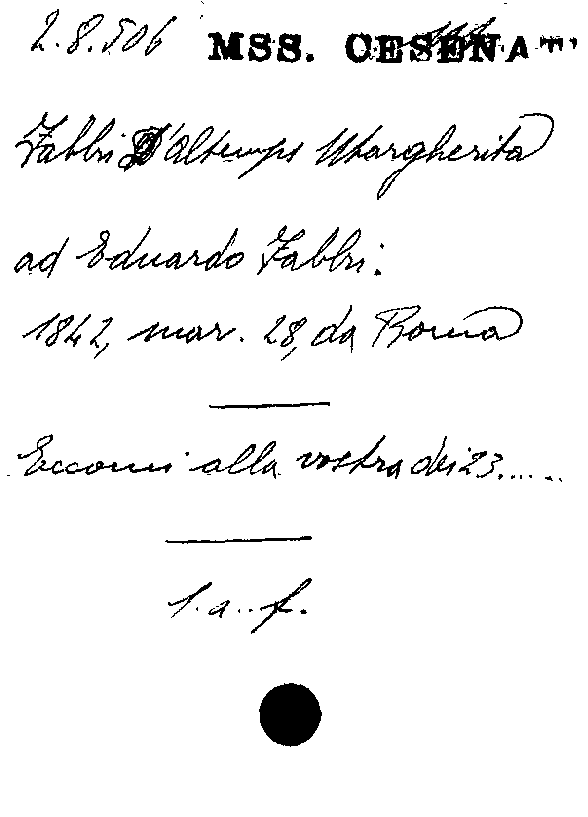 2.8.506 MSS. CESENA
Fabbri D'Altemps Margherita
ad Eduardo Fabbri:
1842, mar. 28, da Roma
Eccomi alla vostra dei 23.....
l.a.f.